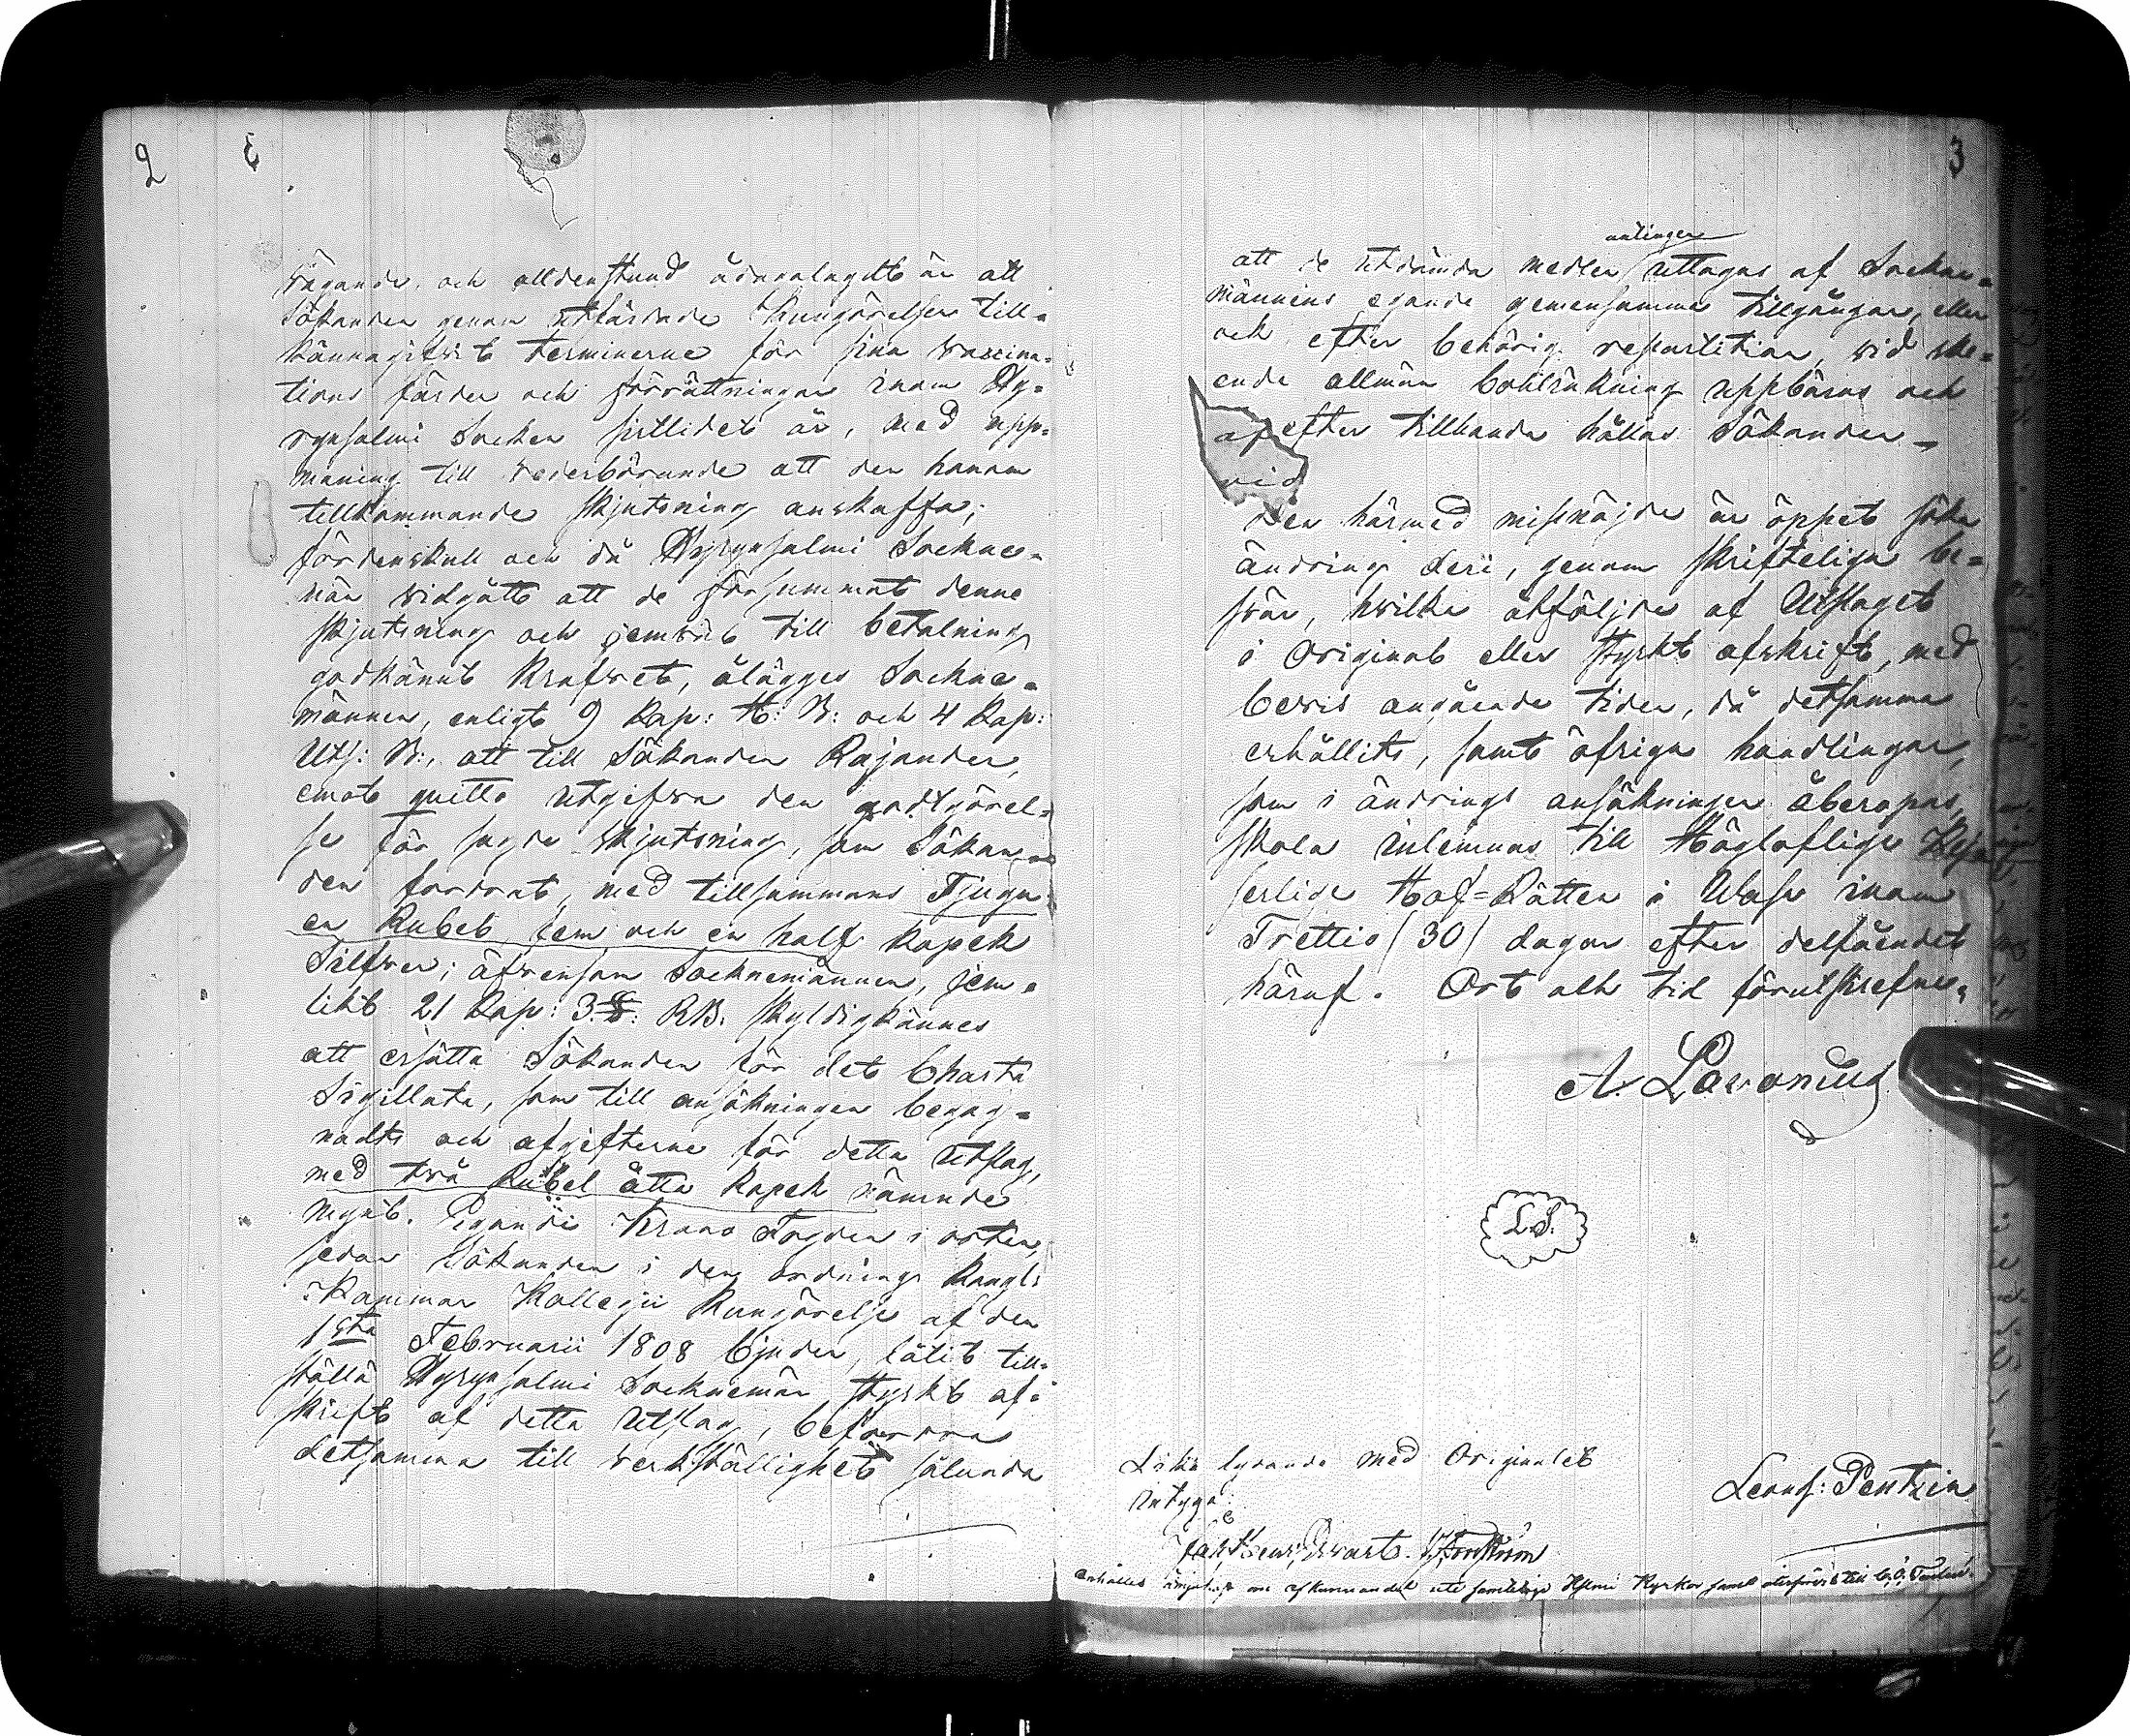 2
3
vägande, och alldenstund ådagalagdt är att
Sökanden genom utfärdade Kungörelser till-
kännagifvit terminerne för sina vaccina-
tions färder och förrättningar inom Hy-
rynsalmi Socken sistlidet år, med upp-
maning till vederbörande att den honom
tillkommande skjutsning anskaffa;
fördenskull och då Hyrynsalmi Sockne-
män vidgått att de försummat denne
skjutsning och jemväl till betalning
godkänt krafvet, ålägges Sockne-
männen, enligt 9 Kap: H: B: och 4 Kap:
Uts: B:, att till Sökanden Rajander,
emot quitto utgifva den godtgörel-
se för sagde skjutsning, som Sökan-
den fordrat, med tillsammans Tjugu
en Rubel fem och en half kopek
Silfver; äfvensom Socknemännen, jem-
likt 21 Kap: 3 §: RB. skyldigkännes
att ersätta Sökanden för det Charta
Sigillata, som till ansökningen begag-
nadts och afgifterne för detta utslag,
med två Rubel åtta kopek nämnde
mynt. Egandi Krono Fogden i orten,
sedan Sökanden i den ordning Kongl:
Kammar Kollegii Kungörelse af den
1sta Februarii 1808 bjuder, låtit till-
ställa Hyrynsalmi Socknemän styrkt af-
skrift af detta utslag, befordra
detsamma till verkställighet sålunda
antingen
att de utdömda medlen uttagas af Sockne-
männens egande gemensamma tillgångar, eller
ock efter behörig repartition, vid ske-
ende allmän boklräkning uppbäras och
efter tillhanda hållas Sökanden
vid
Den härmed missnöjde är öppet söka
ändring deri, genom skrifteliga be-
svär, hvilka åtföljde af Utslaget
i Original eller styrkt afskrift, med
bevis angående tiden, då detsamma
erhållits, samt öfriga handlingar,
som i ändrings ansökningen åberopas,
skola inlemnas till Högloflige Kej-
serlige Hof-Rätten i Wasa inom
Trettio (30) dagar efter delfåendet
häraf. Ort och tid förutskrefne.
A. Lavonius
L.S.
Lika lydande med Originalet
intyga:
Leonh: Pentzin